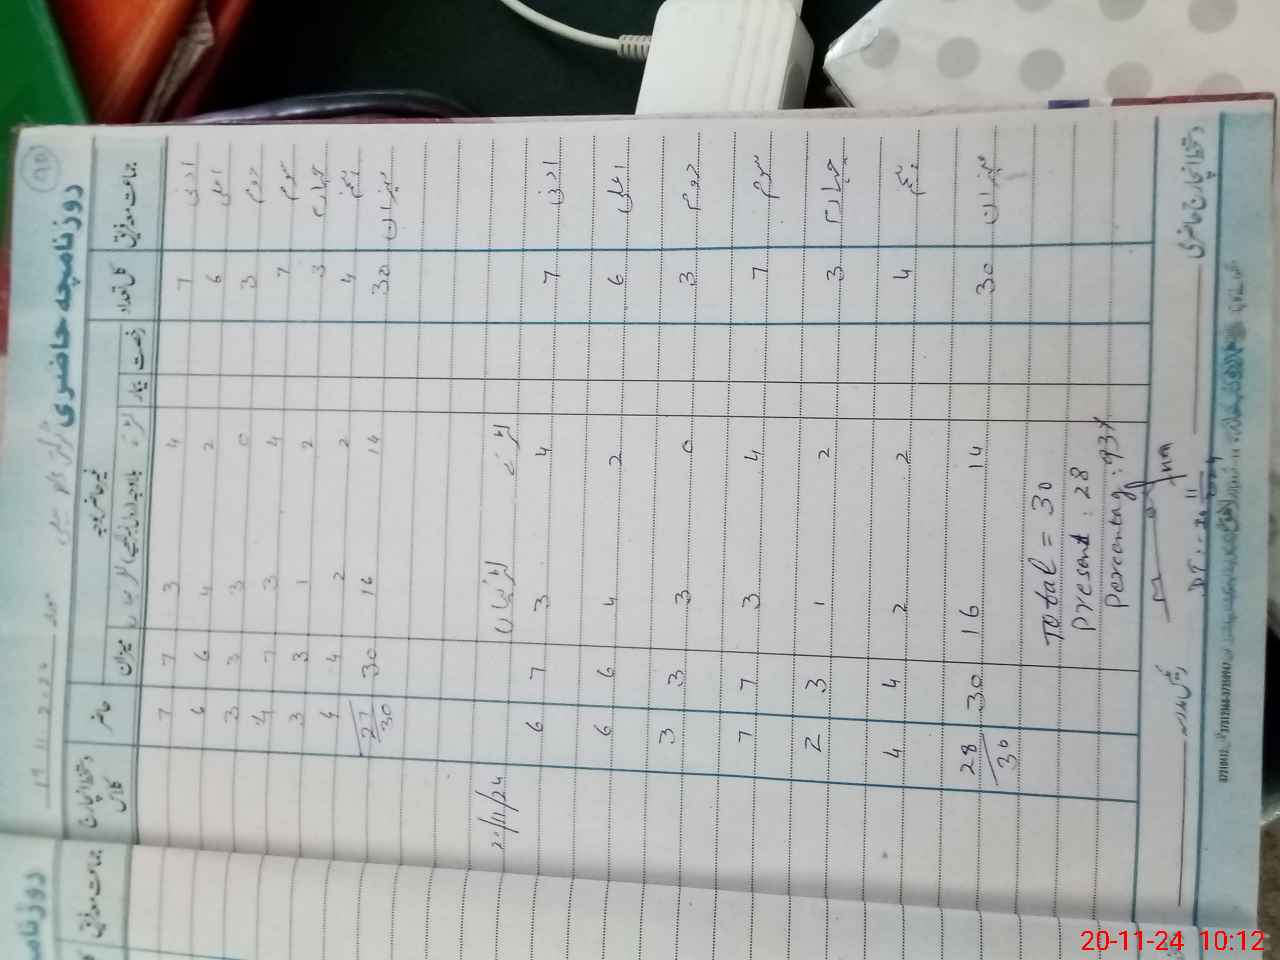 روزنامچہ حاضری
جماعت معہ فریق
کل تعداد
غیر حاضر معہ وجہ
رخصت
بیمار
میزان
حاضر
ادنیٰ 7 4 3 7 7
اعلیٰ 6 2 4 6 6
دوم 3 0 3 3 3
سوم 7 4 3 7 4
چہارم 3 2 1 3 3
پنجم 4 2 2 4 4
میزان 30 14 16 30 27/30
20/11/24
ادنیٰ 7 4 3 7 6
اعلیٰ 6 2 4 6 6
دوم 3 0 3 3 3
سوم 7 4 3 7 7
چہارم 3 2 1 3 2
پنجم 4 2 2 4 4
میزان 30 14 16 30 28/30
Total = 30
Present : 28
Percentag : 93%
دستخط انچارج حاضری
رئیس مدرسہ
جماعت معہ فریق
20-11-24 10:12